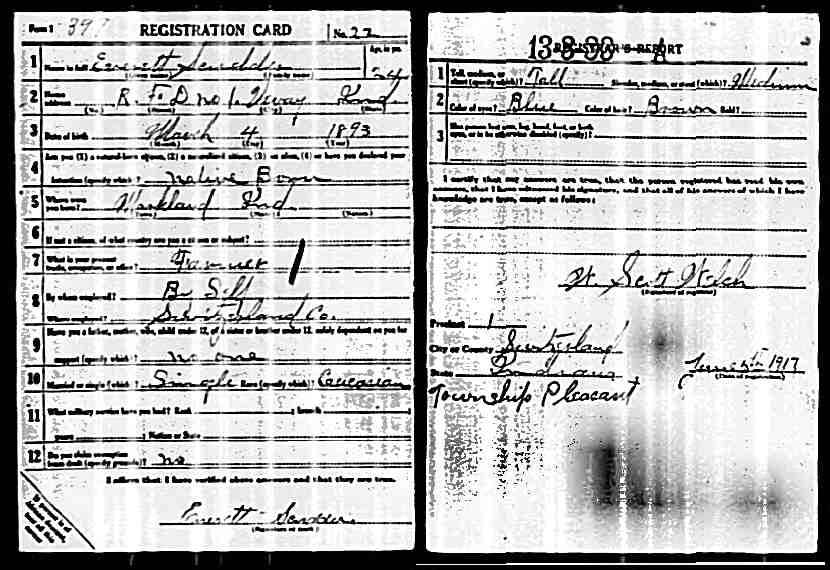 Form 1 397 REGISTRATION CARD No. 22
1 Name in full Everett Scudder Age, in yrs. 24
(Given name) (Family name)
2 Home address R.F.D no 1. Vevay Ind.
(No.) (Street) (City) (State)
3 Date of birth March 4 1893
(Month) (Day) (Year)
4 Are you (1) a natural-born citizen, (2) a naturalized citizen, (3) an alien, (4) or have you declared your
intention (specify which)? Native Born
5 Where were you born? Markland Ind.
(Town) (State) (Nation)
6 If not a citizen, of what country are you a citizen or subject?
7 What is your present trade, occupation, or office? Farmer
8 By whom employed? By Self
Where employed? Switzerland Co.
9 Have you a father, mother, wife, child under 12, or a sister or brother under 12, solely dependent on you for
support (specify which)? no one
10 Married or single (which)? Single Race (specify which)? Caucasian
11 What military service have you had? Rank ; branch
years ; Nation or State
12 Do you claim exemption from draft (specify grounds)? no
I affirm that I have verified above answers and that they are true.
Everett Scudder
(Signature or mark)
13-3-33 A
REGISTRAR'S REPORT
1 Tall, medium, or short (specify which)? Tall Slender, medium, or stout (which)? Medium
2 Color of eyes? Blue Color of hair? Brown Bald?
3 Has person lost arm, leg, hand, foot, or both eyes, or is he otherwise disabled (specify)?
I certify that my answers are true, that the person registered has read his own
answers, that I have witnessed his signature, and that all of his answers of which I have
knowledge are true, except as follows:
W. Scott Welch
(Signature of registrar)
Precinct 1
City or County Switzerland
State Indiana June 5th 1917
(Date of registration)
Township Pleasant